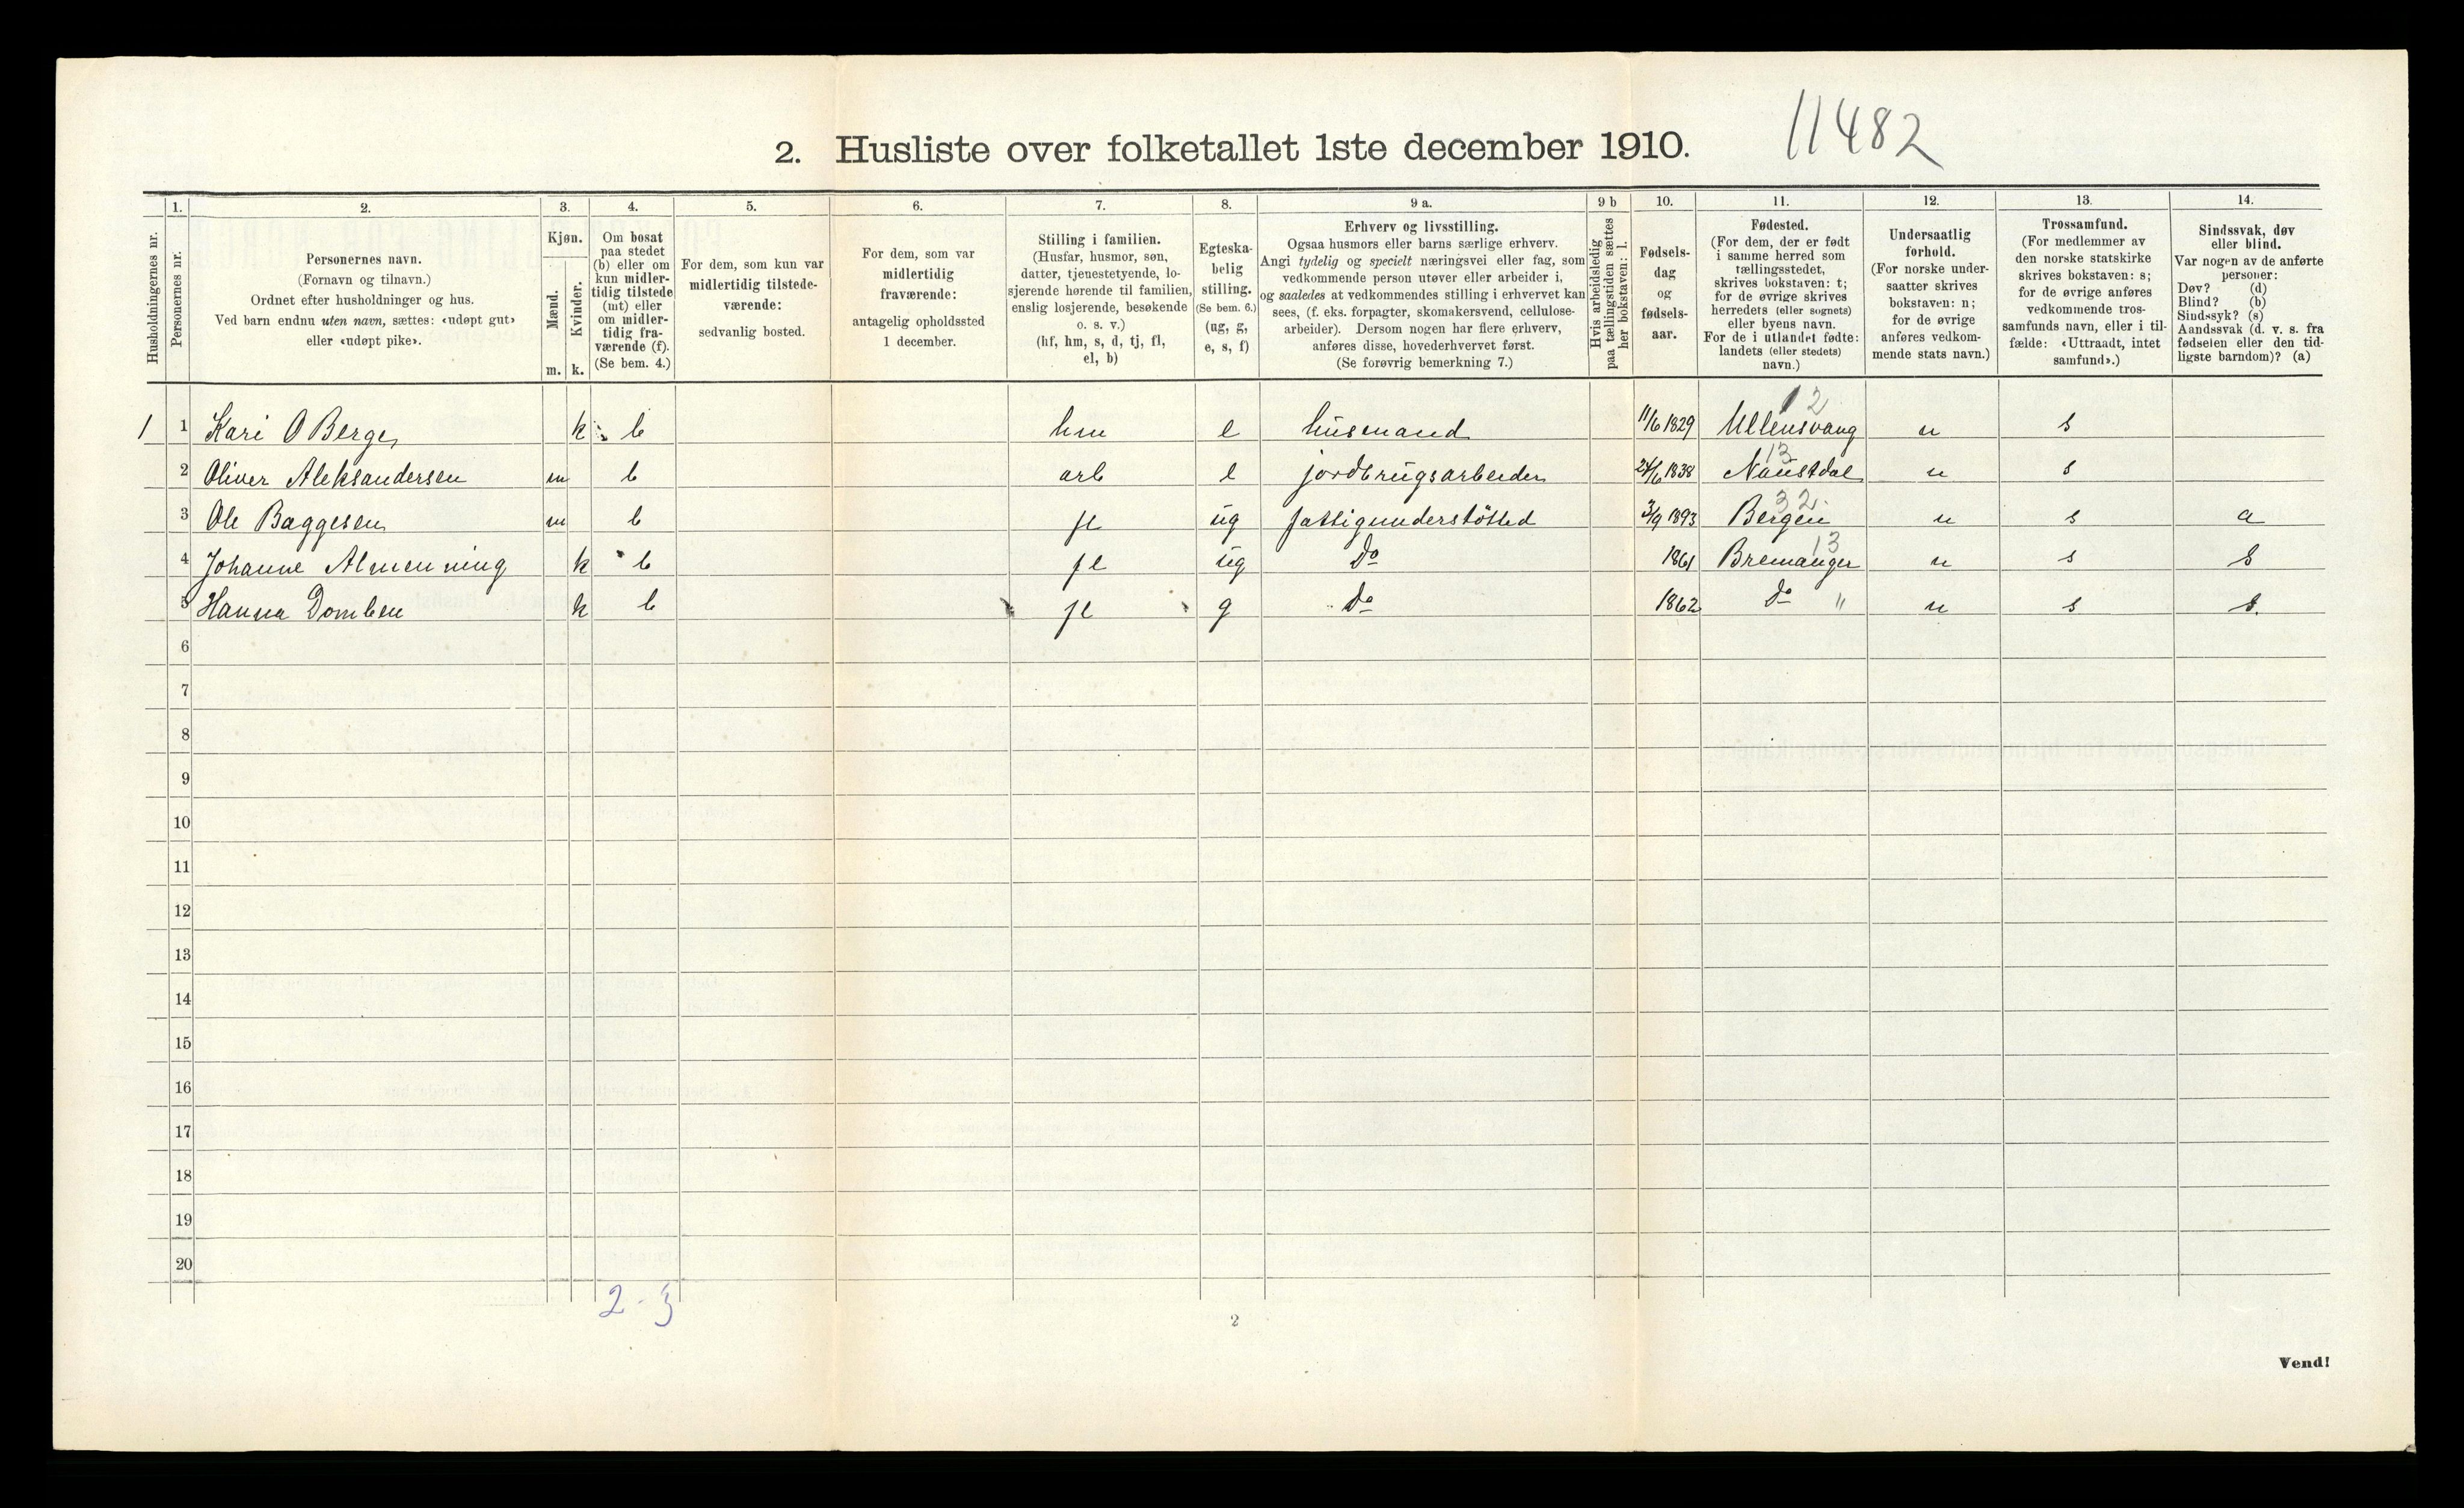 2. Husliste over folketallet 1ste december 1910.
11482
Husholdningernes nr.
1.
Personernes nr.
2.
Personernes navn.
(Fornavn og tilnavn.)
Ordnet efter husholdninger og hus.
Ved barn endnu uten navn, sættes: «udøpt gut»
eller «udøpt pike».
3.
Kjøn.
Mænd.
Kvinder.
m. k.
4.
Om bosat
paa stedet
(b) eller om
kun midler-
tidig tilstede
(mt) eller
om midler-
tidig fra-
værende (f).
(Se bem. 4.)
5.
For dem, som kun var
midlertidig tilstede-
værende:
sedvanlig bosted.
6.
For dem, som var
midlertidig
fraværende:
antagelig opholdssted
1 december.
7.
Stilling i familien.
(Husfar, husmor, søn,
datter, tjenestetyende, lo-
sjerende hørende til familien,
enslig losjerende, besøkende
o. s. v.)
(hf, hm, s, d, tj, fl,
el, b)
8.
Egteska-
belig
stilling.
(Se bem. 6.)
(ug, g,
e, s, f)
9 a.
Erhverv og livsstilling.
Ogsaa husmors eller barns særlige erhverv.
Angi tydelig og specielt næringsvei eller fag, som
vedkommende person utøver eller arbeider i,
og saaledes at vedkommendes stilling i erhvervet kan
sees, (f. eks. forpagter, skomakersvend, cellulose-
arbeider). Dersom nogen har flere erhverv,
anføres disse, hovederhvervet først.
(Se forøvrig bemerkning 7.)
9 b
Hvis arbeidsledig
paa tællingstiden sættes
her bokstaven: l.
10.
Fødsels-
dag
og
fødsels-
aar.
11.
Fødested.
(For dem, der er født
i samme herred som
tællingsstedet,
skrives bokstaven: t;
for de øvrige skrives
herredets (eller sognets)
eller byens navn.
For de i utlandet fødte:
landets (eller stedets)
navn.)
12.
Undersaatlig
forhold.
(For norske under-
saatter skrives
bokstaven: n;
for de øvrige
anføres vedkom-
mende stats navn.)
13.
Trossamfund.
(For medlemmer av
den norske statskirke
skrives bokstaven: s;
for de øvrige anføres
vedkommende tros-
samfunds navn, eller i til-
fælde: «Uttraadt, intet
samfund».)
14.
Sindssvak, døv
eller blind.
Var nogen av de anførte
personer:
Døv? (d)
Blind? (b)
Sindssyk? (s)
Aandssvak (d. v. s. fra
fødselen eller den tid-
ligste barndom)? (a)
12
1 1 Kari O Berge k b hm e husmand 11/6 1829 Ullensvang n s
13
2 Oliver Aleksandersen m b arb e jordbrugsarbeider 24/6 1838 Naustdal n s
32
3 Ole Baggesen m b fl ug fattigunderstötted 3/9 1893 Bergen n s a
13
4 Johanne Almenning k b fl ug do 1861 Bremanger n s s
5 Hanna Domben k b fl g do 1862 do " n s s.
6
7
8
9
10
11
12
13
14
15
16
17
18
19
20
2-3
2
Vend!